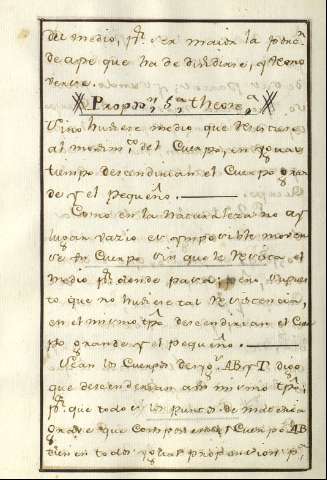 del medio, pr. ser maior la porc.
de ayre que ha de dividirse, q̃ lo no
vence.
Propos.n 5.a theore.a
Si no hubiese medio que resistiese
al movim.to del Cuerpo, en igual
tiempo descendirian el Cuerpo gran
de y el Pequeño.
Como en la Naturaleza no ay
lugar vazio es imposible mover
se un Cuerpo sin que le resista el
medio pr. donde pasa; pero supues
to que no hubiese tal resistencia,
en el mismo tpo. descendirian el Cuer
po grande y el pequeño.
Sean los Cuerpos desig.s AB, y T digo
que descenderian a un mismo tpo.
pr. que todos los puntos de materia
grave que componen el Cuerpo AB
tienen todos igual propension pa.